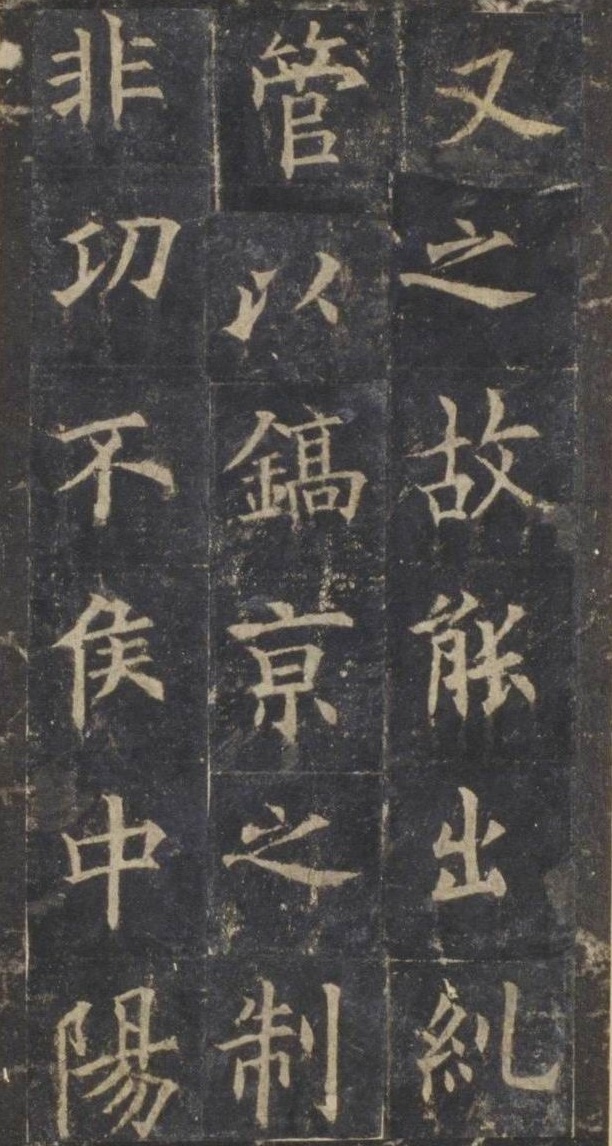 又之故能出糺
管以鎬京之制
非㓛不侯中陽